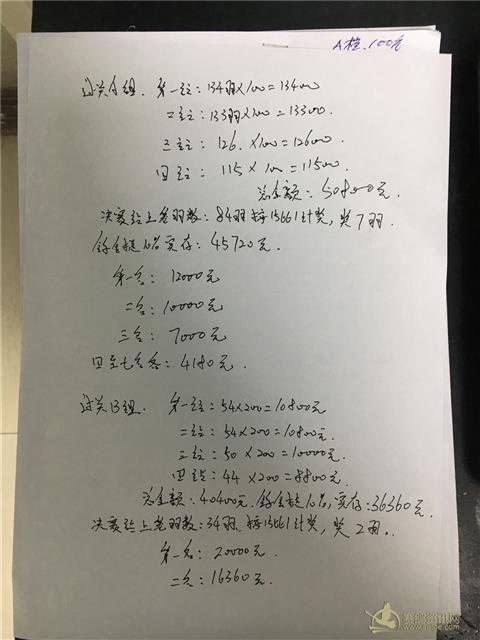 A档.100元
过关A组. 第一站:134羽×100=13400
二站:133羽×100=13300.
三站:126.×100=12600
四站:115×100=11500.
总金额:50800元.
决赛站上笼羽数:84羽.按15661计奖,奖7羽.
除去提10%实存:45720元.
第一名:12000元
二名:10000元
三名:7000元
四至七名各:4180元.
过关B组. 第一站:54×200=10800元
二站:54×200=10800元.
三站:50×200=10000元.
四站:44×200=8800元
总金额:40400元.除去提10%,实存:36360元.
决赛站上笼羽数:34羽.按15661计奖,奖2羽.
第一名:20000元.
二名:16360元.
赛鸽资讯网